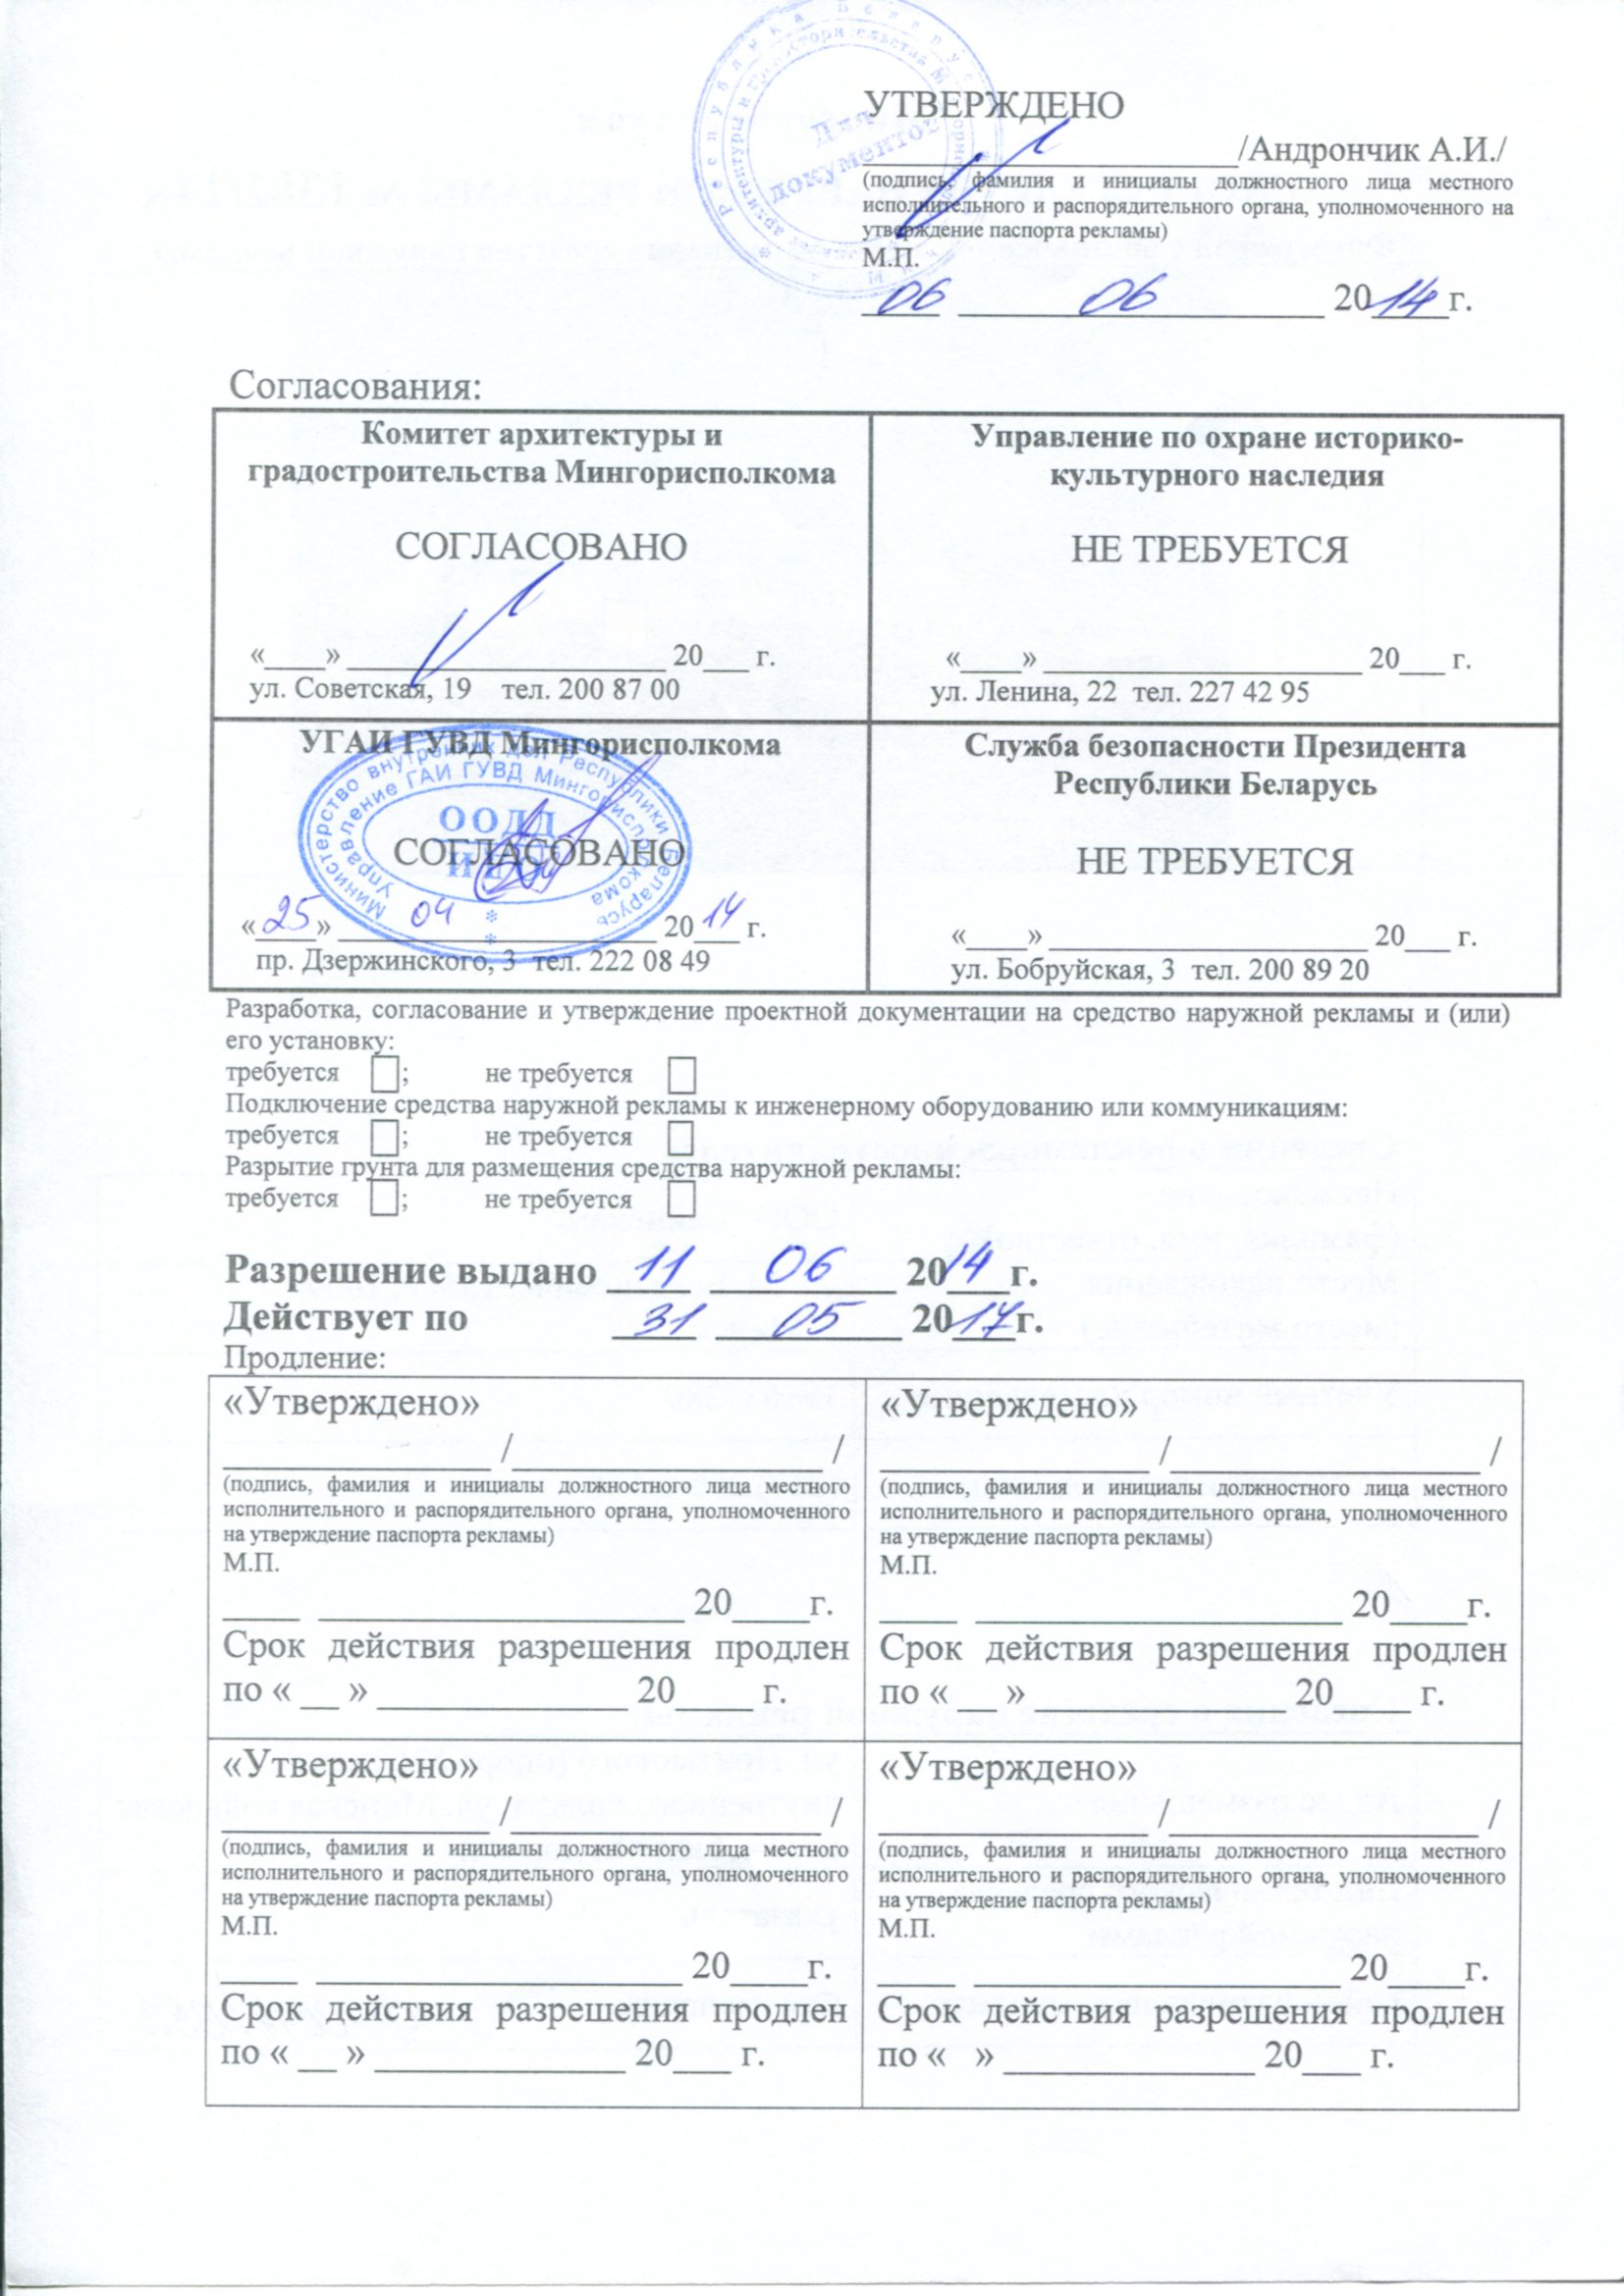 УТВЕРЖДЕНО
____________________/Андрончик А.И./
(подпись, фамилия и инициалы должностного лица местного
исполнительного и распорядительного органа, уполномоченного на
утверждение паспорта рекламы)
М.П.
06 06 2014г.
Для
документов
Согласования:
Комитет архитектуры и
градостроительства Мингорисполкома
СОГЛАСОВАНО
«____» _____________________ 20___ г.
ул. Советская, 19 тел. 200 87 00
Управление по охране историко-
культурного наследия
НЕ ТРЕБУЕТСЯ
«____» _____________________ 20___ г.
ул. Ленина, 22 тел. 227 42 95
УГАИ ГУВД Мингорисполкома
Министерство внутренних дел Республики Беларусь
Управление ГАИ ГУВД Мингорисполкома
ООДД
СОГЛАСОВАНО
«25» 04 2014 г.
пр. Дзержинского, 3 тел. 222 08 49
Служба безопасности Президента
Республики Беларусь
НЕ ТРЕБУЕТСЯ
«____» _____________________ 20___ г.
ул. Бобруйская, 3 тел. 200 89 20
Разработка, согласование и утверждение проектной документации на средство наружной рекламы и (или)
его установку:
требуется ; не требуется
Подключение средства наружной рекламы к инженерному оборудованию или коммуникациям:
требуется ; не требуется
Разрытие грунта для размещения средства наружной рекламы:
требуется ; не требуется
Разрешение выдано 11 06 2014г.
Действует по 31 05 2017г.
Продление:
«Утверждено»
______________ /________________ /
(подпись, фамилия и инициалы должностного лица местного
исполнительного и распорядительного органа, уполномоченного
на утверждение паспорта рекламы)
М.П.
____ ___________________ 20____г.
Срок действия разрешения продлен
по « __ » _____________ 20____ г.
«Утверждено»
______________ /________________ /
(подпись, фамилия и инициалы должностного лица местного
исполнительного и распорядительного органа, уполномоченного
на утверждение паспорта рекламы)
М.П.
____ ___________________ 20____г.
Срок действия разрешения продлен
по « __ » _____________ 20____ г.
«Утверждено»
______________ /________________ /
(подпись, фамилия и инициалы должностного лица местного
исполнительного и распорядительного органа, уполномоченного
на утверждение паспорта рекламы)
М.П.
____ ___________________ 20____г.
Срок действия разрешения продлен
по « __ » _____________ 20___ г.
«Утверждено»
______________ /________________ /
(подпись, фамилия и инициалы должностного лица местного
исполнительного и распорядительного органа, уполномоченного
на утверждение паспорта рекламы)
М.П.
____ ___________________ 20____г.
Срок действия разрешения продлен
по « » _____________ 20___ г.